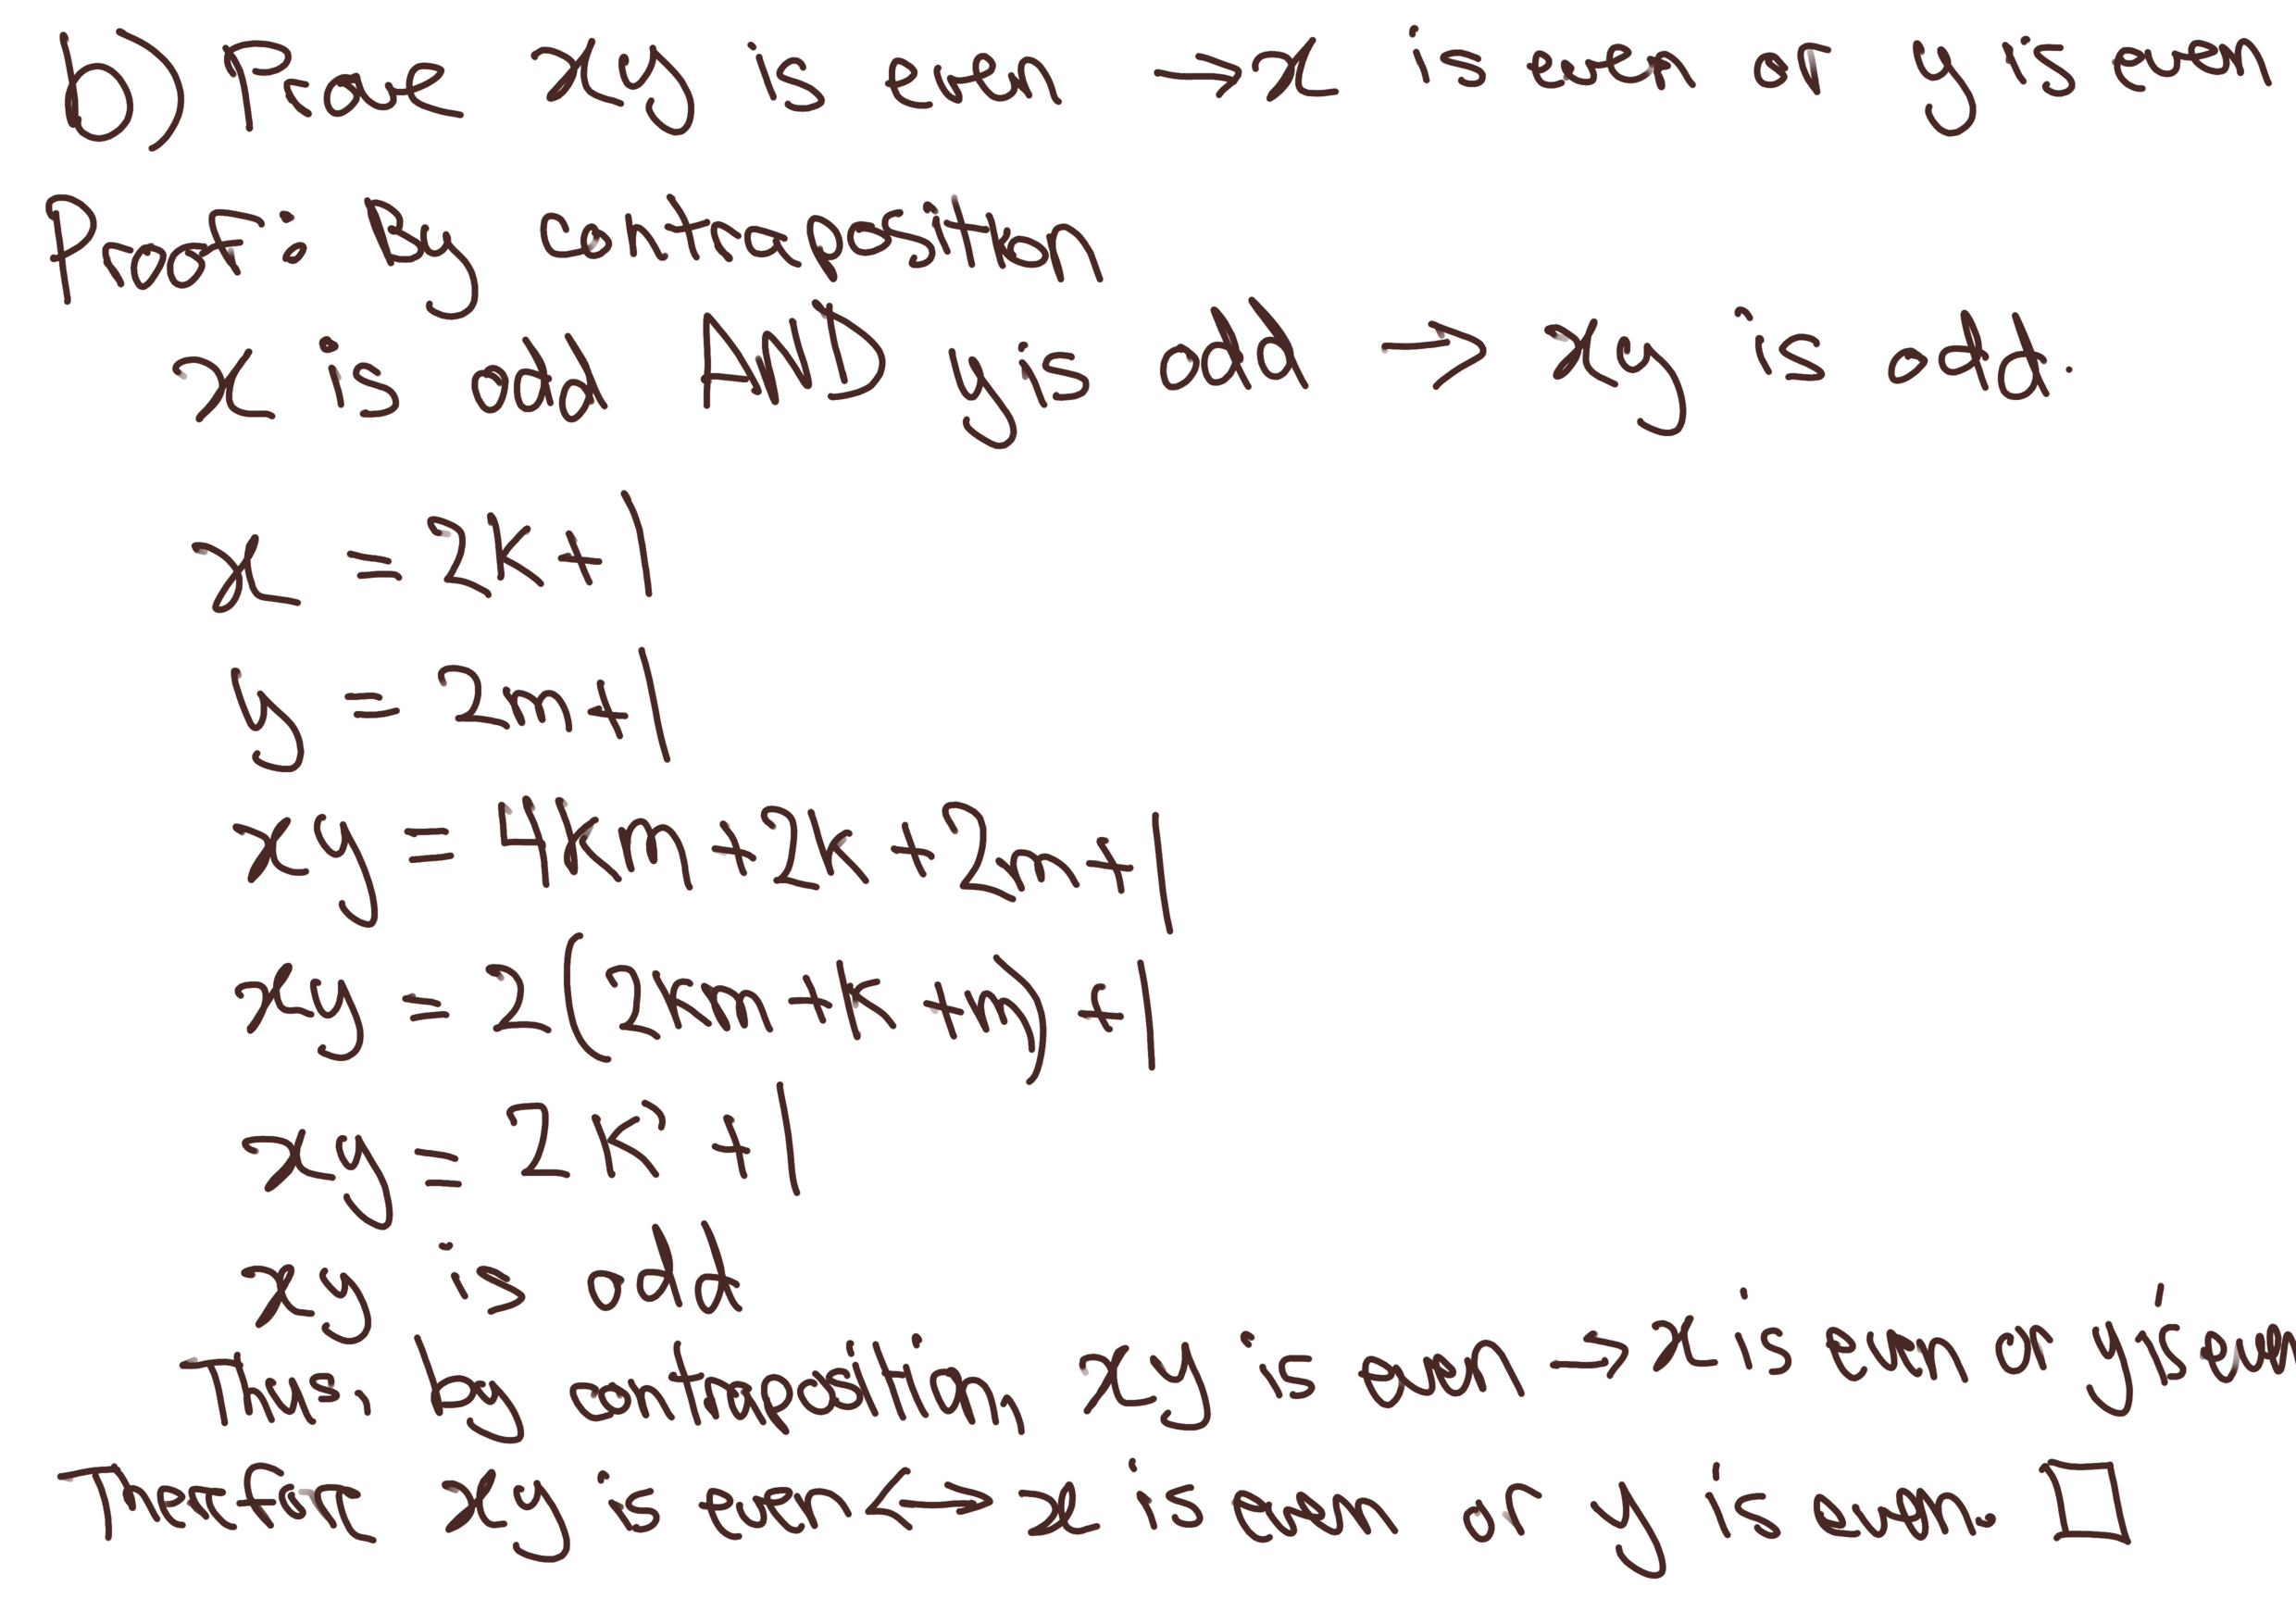 b) Prove xy is even → x is even or y is even
Proof: By contraposition
x is odd AND y is odd → xy is odd.
x = 2k+1
y = 2m+1
xy = 4km+2k+2m+1
xy = 2(2km+k+m)+1
xy = 2k'+1
xy is odd
Thus, by contraposition, xy is even → x is even or y is even
Therefore xy is even <-> x is even or y is even. □